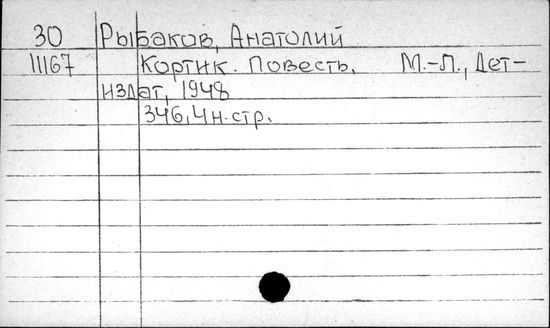 30 Рыбаков, Анатолий
11167 Кортик. Повесть. М.-Л., Дет-
издат, 1948
346,4н.стр.